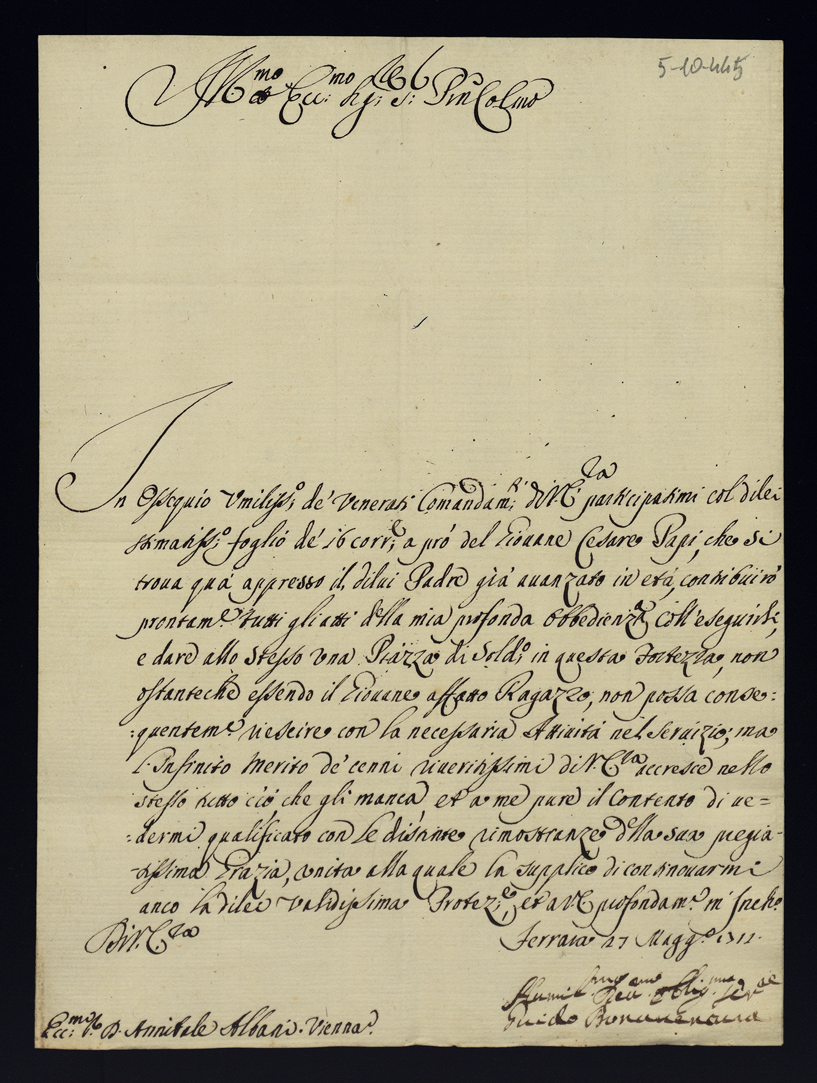 5-10-445
Ill.mo et Ecc.mo Sig.r S.r P̃ron Col.mo
In Ossequio Umiliss.o de' Venerati Comandam.ti di V. Ecc.za participatimi col di lei
stimatiss.o foglio de' 16 corr.e a pró del Giovane Cesare Papi, che si
trova quà appresso il di lui Padre già avanzato in etá, contribuirò
prontam.te tutti gli atti della mia profonda Obbedienza coll'eseguirli,
e dare allo stesso una Piazza di Sold.o in questa Fortezza, non
ostanteche essendo il Giovane affatto Ragazzo, non possa conse:
:quentem.te riescire con la necessaria Attività nel Servizio; ma
l'Infinito Merito de' cenni riveritissimi di V. Ecc.za accresce nello
stesso tutto ciò che gli manca et a me pure il Contento di ve=
=dermi qualificato con le distinte rimostranze della sua pregia-
tissima Grazia, unita alla quale la supplico di continouarmi
anco la di lei Validissima Protez.e, et a V. E. profondam.te m'Inch.o
Di V. Ecc.za
Ferrara 27 Magg.o 1711.
Humil.mo Dev.mo Oblig.mo Ser.re
Guido Bonaventura
Ecc.mo S.r D. Annibale Albani. Vienna